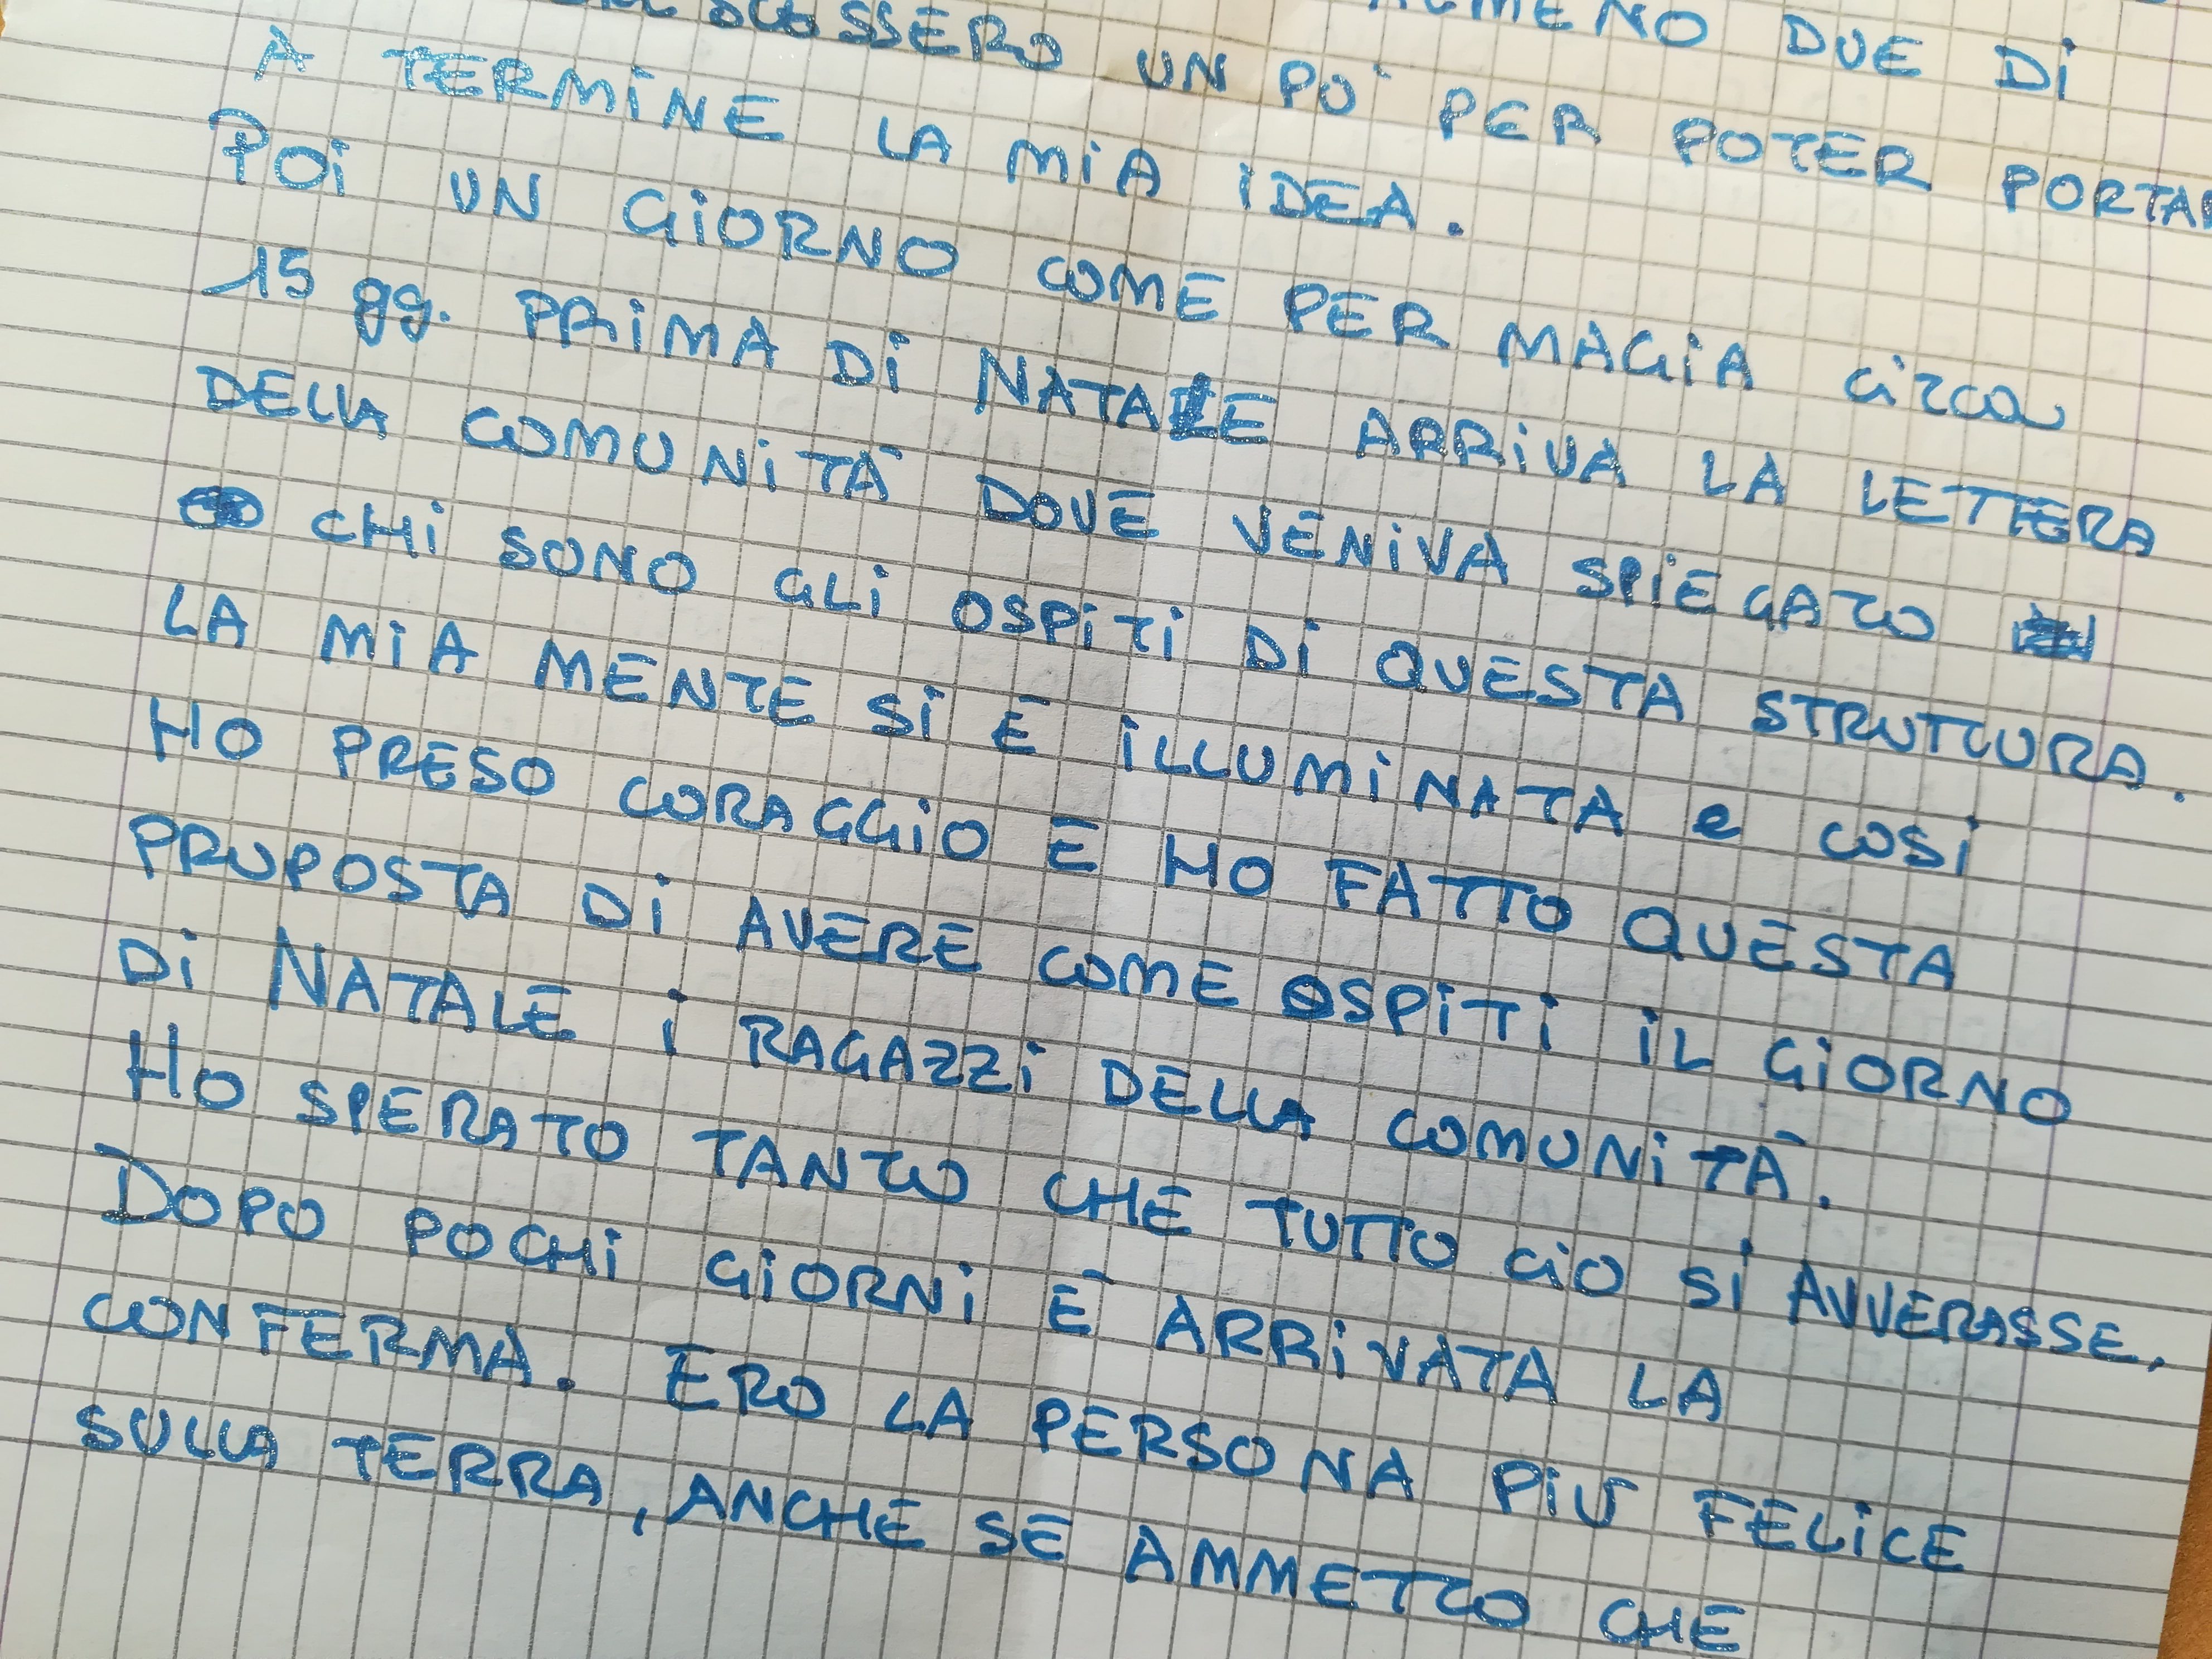 ALMENO DUE DI
SSERO UN PO' PER POTER PORTA
A TERMINE LA MIA IDEA.
POI UN GIORNO COME PER MAGIA circa
15 gg. PRIMA DI NATALE ARRIVA LA LETTERA
DELLA COMUNITÀ DOVE VENIVA SPIEGATO
CHI SONO GLI OSPITI DI QUESTA STRUTTURA.
LA MIA MENTE SI È ILLUMINATA e COSI
HO PRESO CORAGGIO E HO FATTO QUESTA
PROPOSTA DI AVERE COME OSPITI IL GIORNO
DI NATALE I RAGAZZI DELLA COMUNITÀ.
HO SPERATO TANTO CHE TUTTO CIO SI AVVERASSE.
DOPO POCHI GIORNI È ARRIVATA LA
CONFERMA. ERO LA PERSONA PIÙ FELICE
SULLA TERRA, ANCHE SE AMMETTO CHE